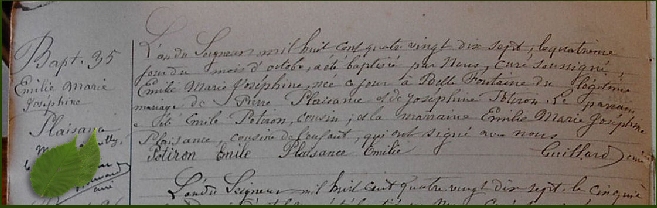 Bapt. 35
Emilie Marie
Joséphine
Plaisance
L'an du Seigneur mil huit cent quatre vingt dix sept, le quatrième
jour du mois d'octobre, a été baptisée par Nous, curé soussigné,
Emilie Marie Joséphine, née ce jour à Belle Fontaine du légitime
mariage de Pierre Plaisance et de Joséphine Potiron. Le parrain
a été Emile Potiron, cousin, et la marraine Emilie Marie Joséphine
Plaisance, cousine de l'enfant, qui ont signé avec nous
Potiron Emile Plaisance Emilie Guillard curé
L'an du Seigneur mil huit cent quatre vingt dix sept, le cinquiè